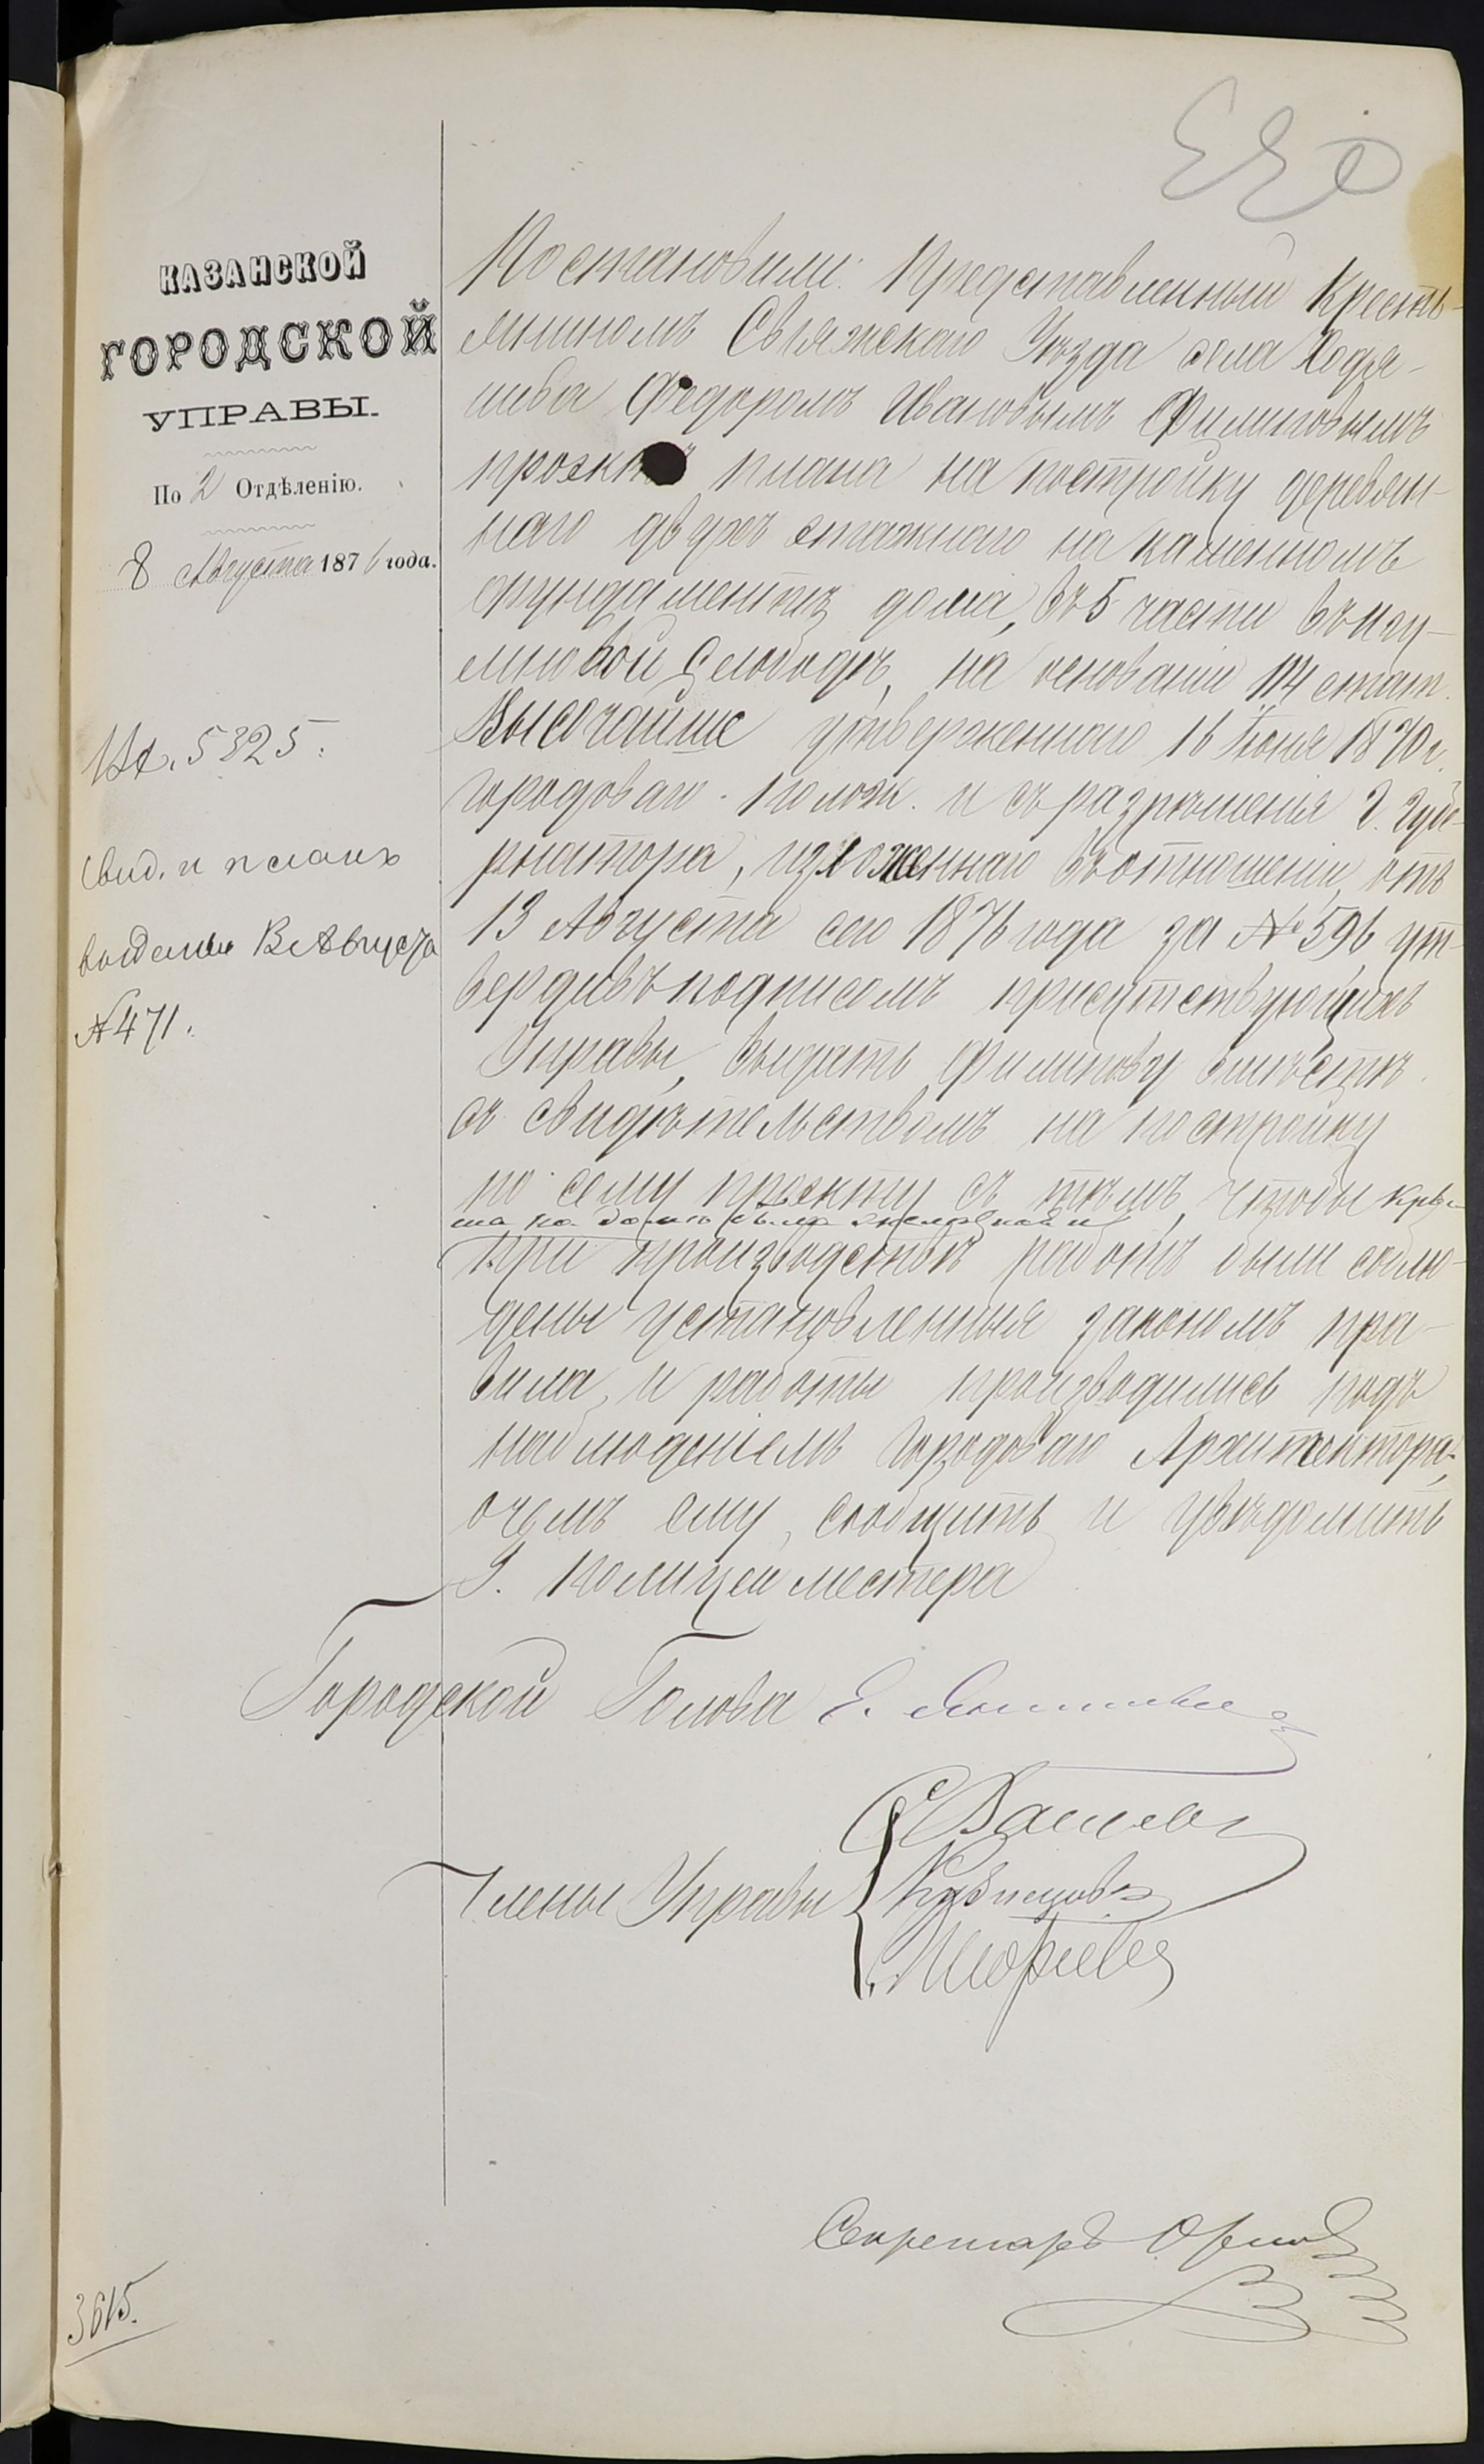 КАЗАНСКОЙ
ГОРОДСКОЙ
УПРАВЫ.
По 2 Отдѣленію.
8 Августа 1876 года.
Исх. 5325.
Свид. и планъ
выданы Августа
№ 471.
3615.
Постановили: Представленный Кресть-
яниномъ Свіяжскаго Уѣзда села Ходя-
шева Федоромъ Ивановымъ Филиповымъ
проэктъ плана на постройку деревян-
наго двухъ этажнаго на каменномъ
фундаментѣ дома, въ 5 части въ Игу-
мновой Слободѣ, на основаніи 114 стат.
Высочайше утвержденнаго 16 Іюня 1870 г.
городоваго полож. и съ разрѣшенія Г. Губе-
рнатора, изложеннаго въ отношеніи, отъ
13 Августа сего 1876 года за № 596, ут-
вердивъ подписомъ присутствующихъ
Управы, выдать Филипову вмѣстѣ
съ свидѣтельствомъ на постройку
по сему проекту съ тѣмъ, чтобы кры-
ша на домѣ была желѣзная и
при производствѣ работъ были соблю-
дены установленныя закономъ пра-
вила, и работы производились подъ
наблюденіемъ городоваго Архитектора,
о чемъ ему, сообщить и увѣдомить
Г. Полицейместера
Городской Голова Е.
Члены Управы
Кузнецовъ
Секретарь Орлов